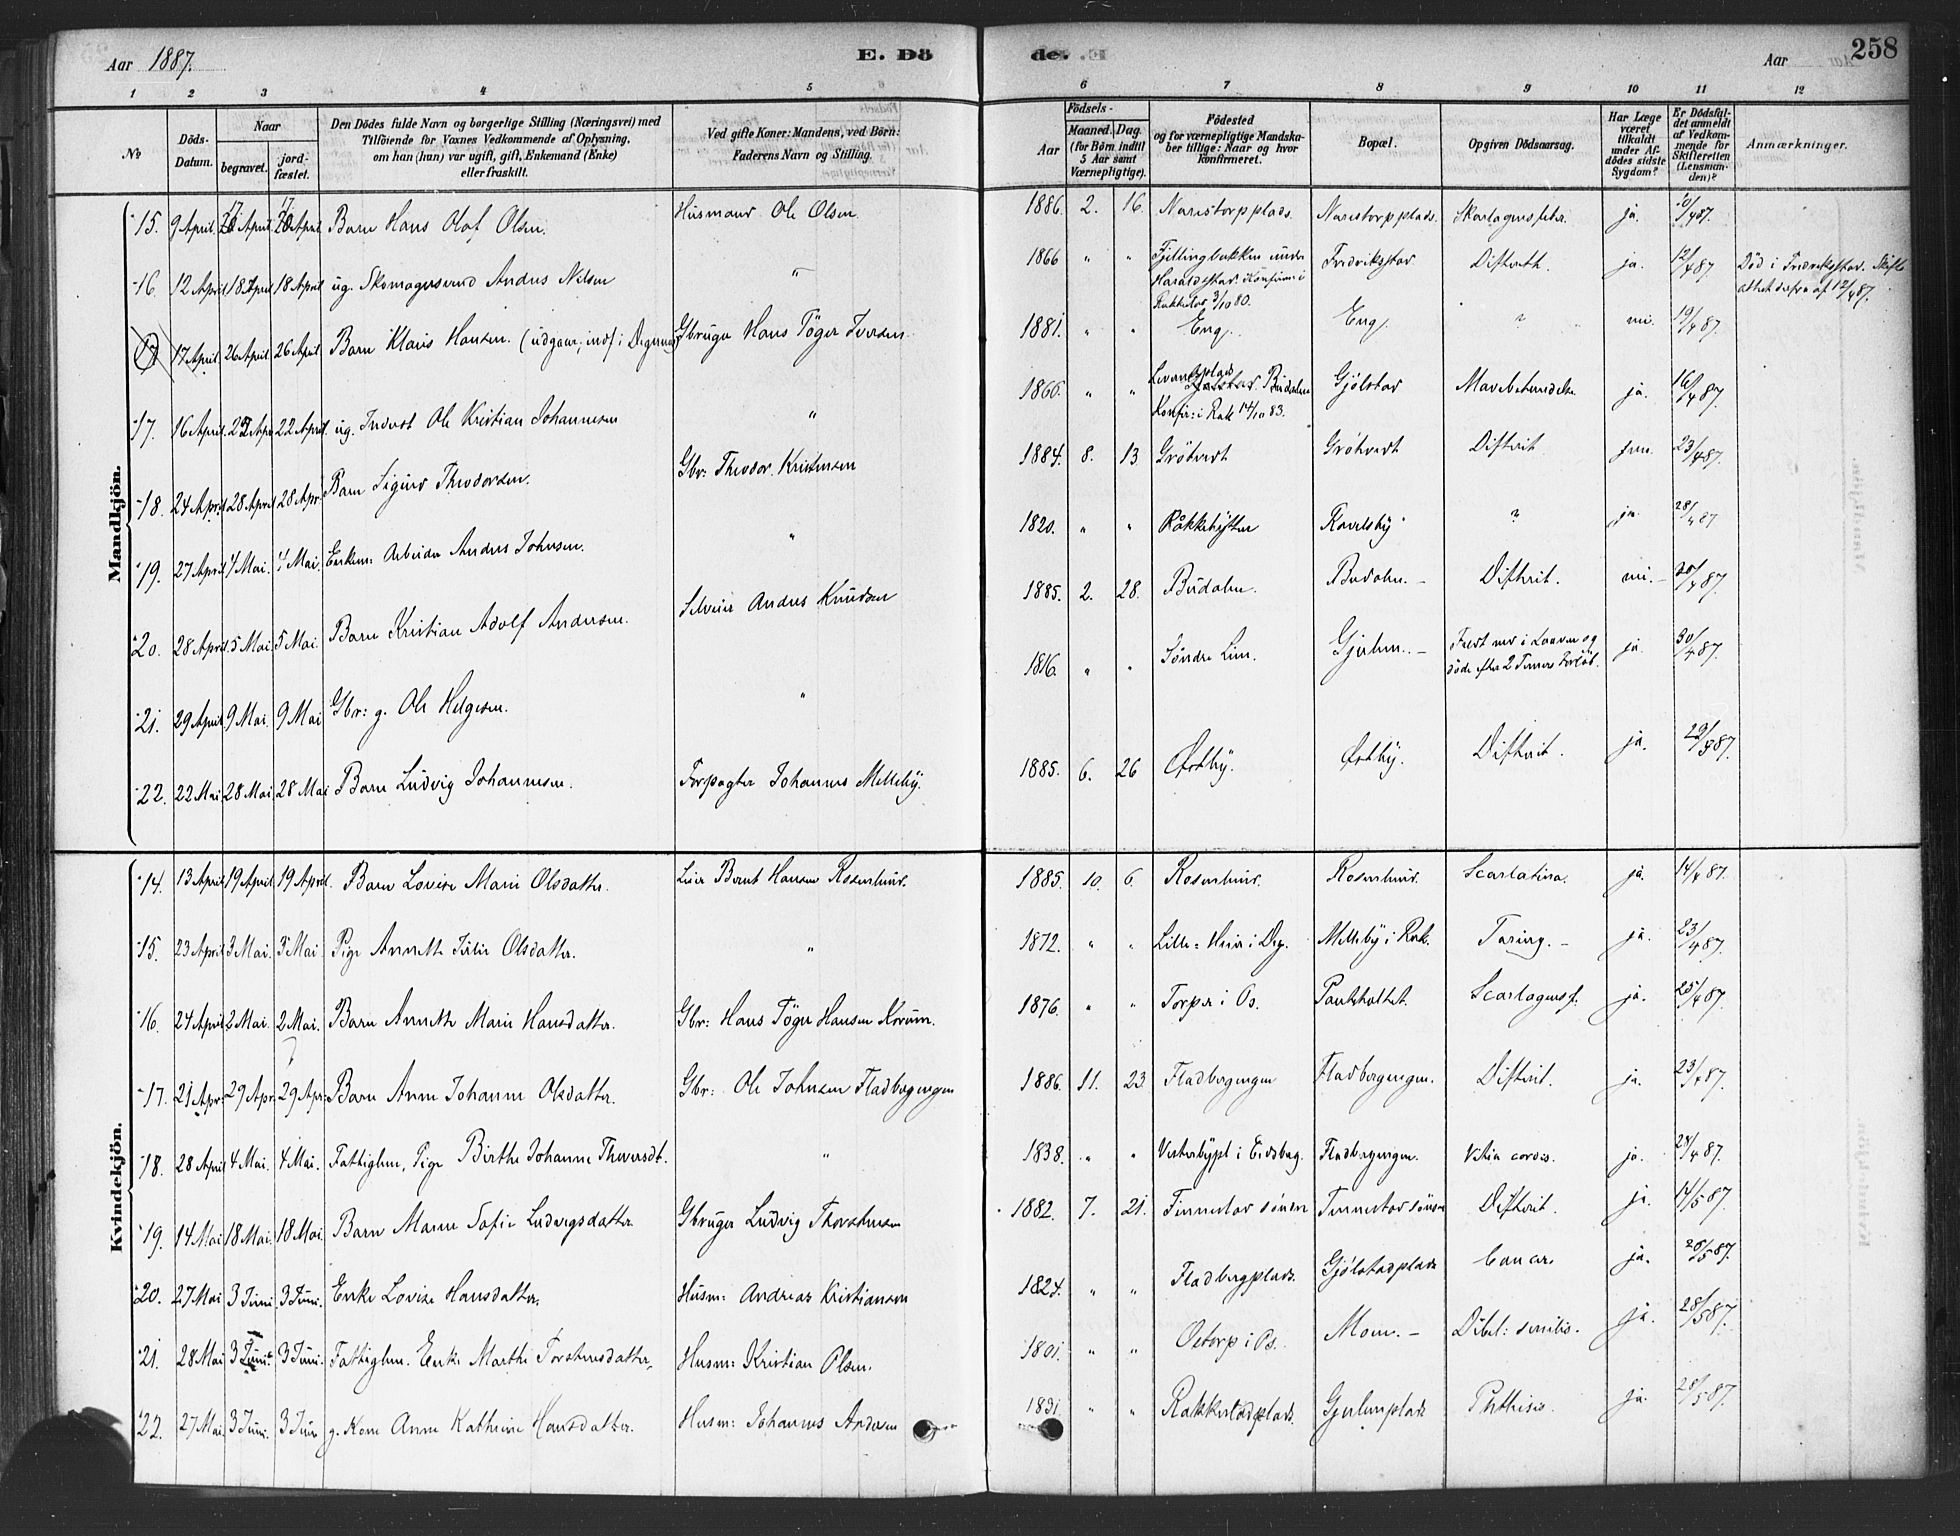 Aar 1887. E. Dö
de. Aar 258
1 2 3 4 5
6 7 8 9 10 11 12
No Döds-Datum. Naar begravet. jordfæstet. Den Dödes fulde Navn og borgerlige Stilling (Næringsvei) med Tilföiende for Voxnes Vedkommende af Oplysning, om han (hun) var ugift, gift, Enkemand (Enke) eller fraskilt. Ved gifte Koner: Mandens, ved Börn: Faderens Navn og Stilling.
Födsels- Aar Maaned. Dag. (for Börn indtil 5 Aar samt Værnepligtige). Födested og for værnepligtige Mandskaber tillige: Naar og hvor konfirmeret. Bopæl. Opgiven Dödsaarsag. Har Læge været tilkaldt under Afdödes sidste Sygdom? Er Dödsfaldet anmeldt af Vedkommende for Skifteretten (Lensmanden)? Anmærkninger.
Mandkjön.
15. 9 April. 17 April 17 April Barn Hans Olaf Olsen. Husmand Ole Olsen 1886. 2. 16. Narestorpplads. Narestorpplads. Skarlagensfeber. ja.
16. 12 April 18 April 18 April ug. Skomagersvend Anders Nilsen " 1866 " " Fjellingbakken under Haraldstad. Konfirm: i Rakkestad 3/10 80. Fredriksstad Difterith. ja. 12/4 87 Död i Fredriksstad. Skifteattest derfra af 12/4 87.
17 17 April 26 April 26 April Barn Klaus Hansen. (udgaar, indf. i Degernes) Gbruger Hans Töger Iversen 1881. " " Eng. Eng. ? nei. 19/4 87.
17. 16 April. 22 Apr 22 April. ug. Inderst Ole Kristian Johannesen " 1866. " " Budalen Konfir: i Rak 14/10 83. Gjölstad Mavebetændelse ja. 16/4 87
18. 24 April 28 April 28 Apr Barn Sigurd Theodorsen. Gbr: Theodor Kristensen 1884. 8. 13 Grötvedt Grötvedt Difterit 23/4 87.
19. 27 April 4 Mai. 4 Mai. Enkem: Arbeider Anders Johnsen. " 1820. " " Kovelsby ? ja 28/4 87
20. 28 April. 5 Mai. 5 Mai. Barn Kristian Adolf Andersen. Selveier Anders Knudsen 1885. 2. 28. Budalen. Budalen. Difterit. nei. 30/4 87.
21. 29 April 9 Mai. 9 Mai Gbr: g. Ole Helgesen. " 1816. " " Söndre Lien. Gjerlien. Faldt ned i Laaven og döde efter 2 Timers Forlöb. ja 30/4 87.
22. 22 Mai 28 Mai 28 Mai Barn Ludvig Johannesen. Forpagter Johannes Melleby. 1885. 6. 26 Østby. Østby. Difterit. ja. 23/5 87.
Kvindekjön.
14. 13 April 19 April 19 April. Barn Lovise Marie Olsdatter. Leier Bernt Hansen Rosenlund. 1885. 10. 6. Rosenlund. Rosenlund. Scarlatina. ja. 14/4 87.
15. 23 April 3 Mai. 3 Mai Pige Annette Julie Olsdatter. " 1872. " " Lille-Heier i Deg. Melleby i Rak. Tæring. ja. 23/4 87.
16. 24 April 2 Mai. 2 Mai. Barn Annette Marie Hansdatter. Gbr: Hans Töger Hansen Korum. 1876. " " Torper i Os. Scarlagensf. ja. 25/4 87.
17. 21 Apr: 29 Apr. 29 Apr: Barn Anne Johanne Olsdatter. Gbr: Ole Johnsen Fladbergengen 1886. 11. 23 Fladbergengen Fladbergengen. Difterit. ja. 23/4 87.
18. 28 April 4 Mai. 4 Mai. Fattiglem, Pige Birthe Johanne Theversdt. " 1838. " " Vesterbypl i Eidsberg. Fladbergengen. Vitia cordis. ja. 28/4 87.
19. 14 Mai 18 Mai. 18 Mai. Barn Maren Sofie Ludvigsdatter Gbruger Ludvig Thorstensen 1882. 7. 21. Finnestad söndre Finnestad söndre Difterit. ja. 14/5 87.
20. 27 Mai 3 Juni 3 Juni. Enke Lovise Hansdatter. Husm: Andreas Kristiansen 1824. " " Fladbergplads. Gjölstadplads Cancer. ja. 26/5 87.
21. 28 Mai 3 Juni. 3 Juni. Fattiglem. Enke Marthe Torstensdatter, Husm: Kristian Olsen. 1801. " " Ostorp i Os. Moen. Debil: senilis. ja. 28/5 87.
22. 27 Mai. 3 Juni. 3 Juni g. Kone Anne Kathrine Hansdatter. Husm: Johannes Andersen 1831. " " Rakkestadplads. Gjerlienplads Phthisis ja. 28/5 87.